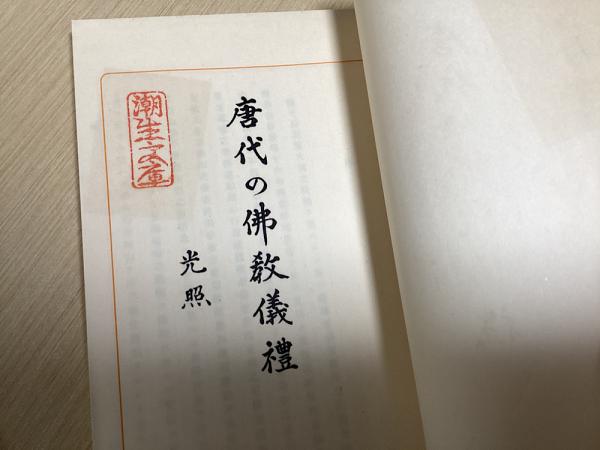 唐代の佛教儀禮
光照
潮生文庫